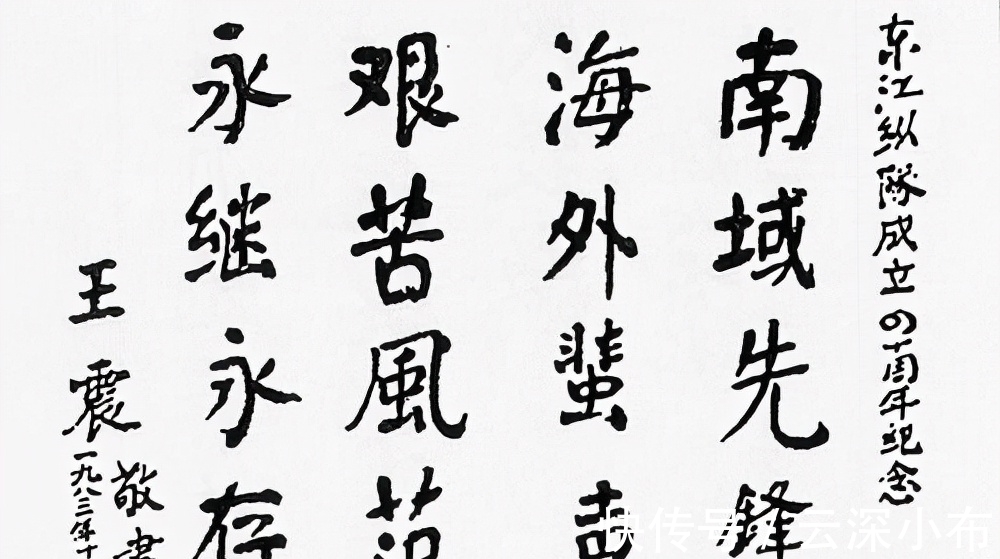 东江纵隊成立四十周年纪念
南域先锋
海外蜚声
艰苦風范
永继永存
王震敬書
一九八三年十
快传号 / 云深小布